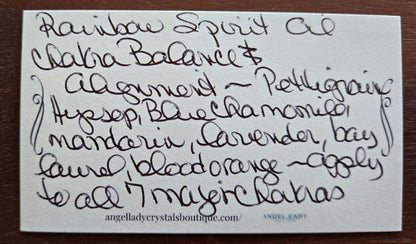 Rainbow Spirit Oil
Chakra Balance &
Alignment ~ Pettigraine
Hyssop, Blue Chamomile,
mandarin, lavender, bay
laurel, blood orange ~ apply
to all 7 major chakras
angelladycrystalsboutique.com/ ANGEL LADY